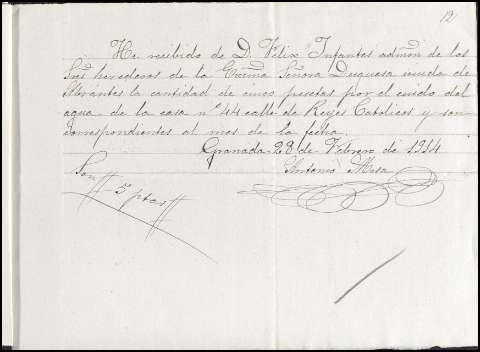 12
He recibido de D. Felix Infantas admōn de los
Srēs herederos de la Excma Señora Duquesa viuda de
Abrantes la cantidad de cinco pesetas por el cuido del
agua de la casa nº 44 calle de Reyes Catolicos y son
correspondientes al mes de la fecha.
Granada 28 de Febrero de 1914
Antonio Mesa
Son 5 ptas